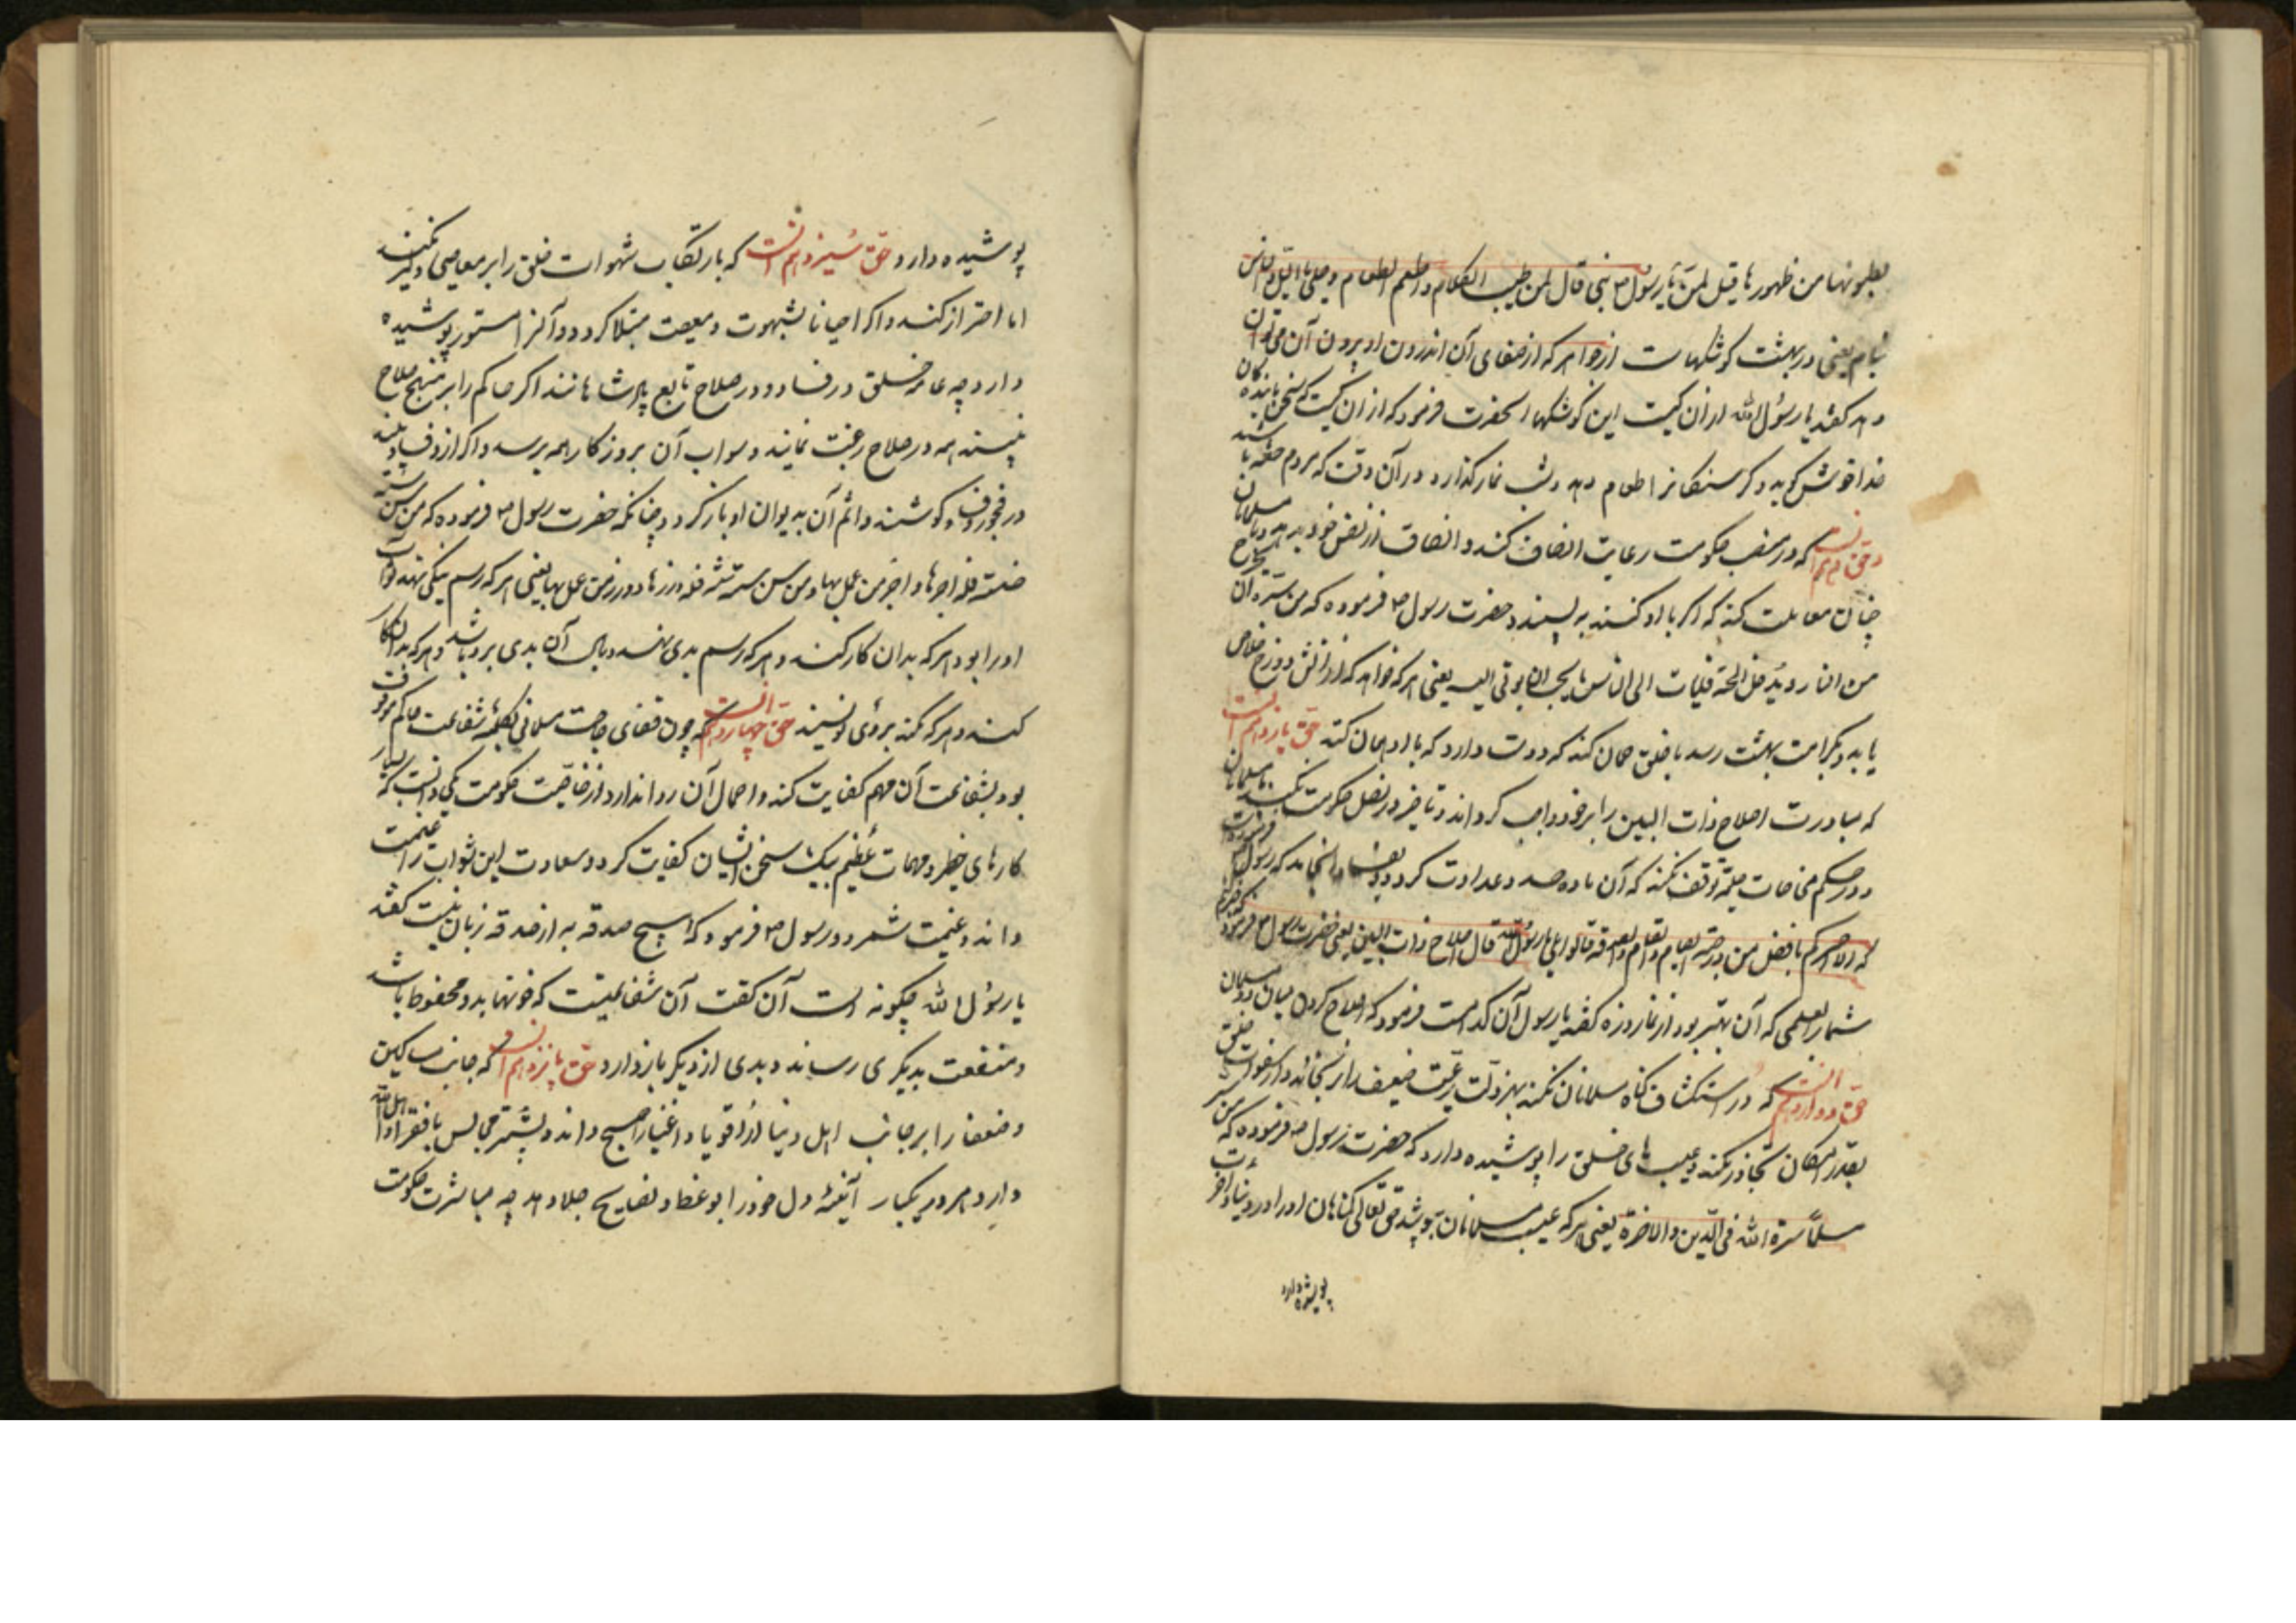 بطونها من ظهورها قیل لمن یا رسول الله قال لمن طیب الکلام و اطعم الطعام و صلی باللیل و الناس
نیام یعنی در بهشت کوشکهاست از جواهر که از صفای آن اندرون او بیرون آن می توان
دید گفتند یا رسول الله از آن کیست این کوشکها آنحضرت فرمود که از آن کیست که سخن با بندگان
خدا خوش گوید و گرسنگانرا طعام دهد و شب نماز گذارد در آن وقت که مردم خفته باشند
و حق دهم آنست که در منصب حکومت رعایت انصاف کند و انصاف از نفس خود بدهد و با مسلمانان
چنان معاملت کند که اگر با او کنند به پسندد حضرت رسول فرموده که من سره ان یخرج
من النار و یدخل الجنة فلیات الی الناس ما یحب ان یوتی الیه یعنی هر که خواهد که از آتش دوزخ خلاص
یابد و بکرامت بهشت رسد با خلق همان کند که دوست دارد که با او همان کنند حق یازدهم آنست
که مبادرت اصلاح ذات البین را بر خود واجب گرداند و تاخیر در فصل حکومت نکند
و در حکم مخاصمات توقف نکند که آن ماده حسد و عداوت گردد و بفساد انجامد که رسول فرموده
که الا اخبرکم بافضل من درجة الصیام و القیام و الصدقة قالوا بلی یا رسول الله قال اصلاح ذات البین یعنی حضرت رسول فرمود
شما را بعملی که آن بهتر بود از نماز و روزه گفتند یا رسول آن کدامست فرمود که اصلاح کردن میان دو مسلمان
حق دوازدهم آنست که در استکشاف گناه مسلمانان نکند و بهر زلت رعیت ضعیف را نرنجاند و از عورات خلق
بقدر امکان تجاوز نکند و عیب های خلق را پوشیده دارد که حضرت رسول فرموده که من ستر
مسلما ستره الله فی الدین و الاخرة یعنی هر که عیب مسلمانان بپوشد حق تعالی گناهان او را در دنیا و آخرت
پوشیده دارد
پوشیده دارد و حق سیزدهم آنست که بارتکاب شهوات خلق را بر معاصی دلیر نکند
اما احتراز کند و اگر احیانا بشهوت و معصیت مبتلا گردد آنرا مستور پوشیده
دارد چه عامه خلق در فساد و در صلاح تابع پادشاهانند اگر حاکم را بر منهج صلاح
بینند همه در صلاح رغبت نمایند و ثواب آن بروزگار همه برسد و اگر ازو فساد بینند
در فجور و فساد کوشند و اثم آن به دیوان او بازگردد چنانکه حضرت رسول فرموده که من سن سنة
حسنة فله اجرها و اجر من عمل بها و من سن سنة سیئة فله وزرها و وزر من عمل بها یعنی هر که رسم نیکی نهد ثواب
او را بود هر که بدان کار کند و هر که رسم بدی نهد وبال آن بدی برو باشد و هر که بدان کار
کند و هر که کند بروی نویسند حق چهاردهم آنست که چون قضای حاجت مسلمانی بکلمهٔ شفاعت حاکم موقوف
بود بشفاعت آن مهم کفایت کند و اهمال آن روا ندارد از خاصیت حکومت یکی آنست که بسیار
کارهای خطیر و مهمات عظیم بیک سخن ایشان کفایت گردد و سعادت این ثواب را غنیمت
داند و غنیمت شمرد و رسول فرمود که هیچ صدقه به از صدقه زبان نیست گفتند
یا رسول الله چگونه است آن گفت آن شفاعتیست که خونها بدو محفوظ باشد
و منفعت بدیگری رساند و بدی از دیگر باز دارد حق پانزدهم آنست که جانب مساکین
و ضعفا را بر جانب اهل دنیا از اقویا و اغنیا راجح داند و بیشتر مجالس با فقرا و اهل الله
دارد و هر روز یکبار آیینهٔ دل خود را بوعظ و نصایح جلا دهد چه مباشرت حکومت